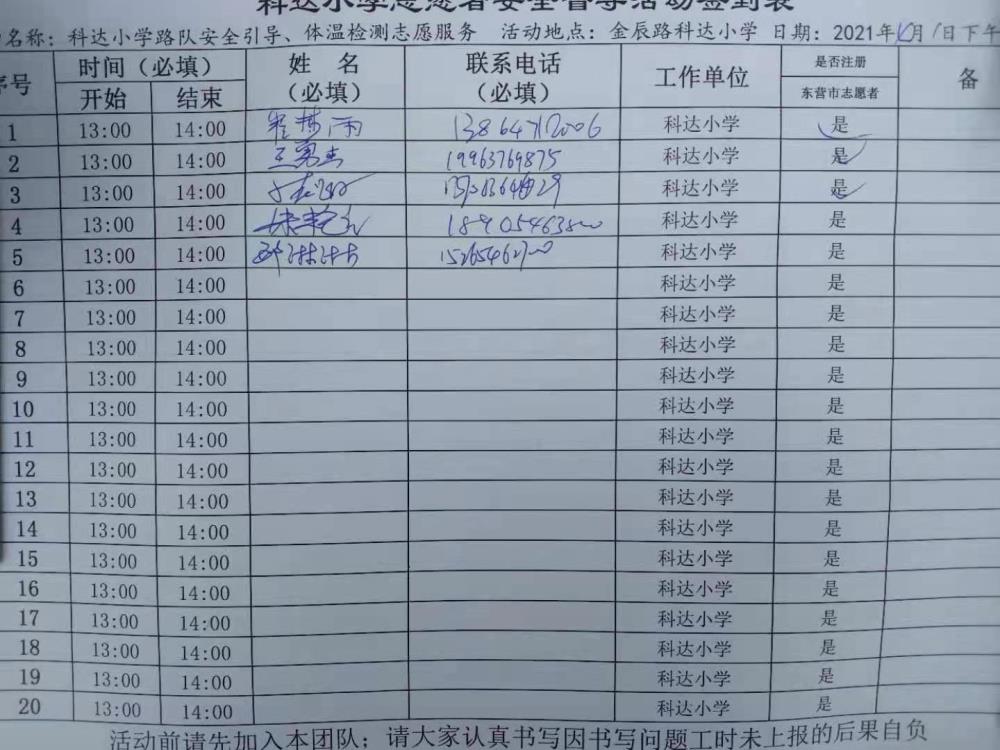 科达小学志愿者安全督导活动签到表
名称：科达小学路队安全引导、体温检测志愿服务 活动地点：金辰路科达小学 日期：2021年 月1日下午
序号 时间（必填） 姓 名（必填） 联系电话（必填） 工作单位 是否注册 备
开始 结束 东营市志愿者
1 13:00 14:00 科达小学 是
2 13:00 14:00 王勇杰 19963769875 科达小学 是
3 13:00 14:00 科达小学 是
4 13:00 14:00 科达小学 是
5 13:00 14:00 科达小学 是
6 13:00 14:00 科达小学 是
7 13:00 14:00 科达小学 是
8 13:00 14:00 科达小学 是
9 13:00 14:00 科达小学 是
10 13:00 14:00 科达小学 是
11 13:00 14:00 科达小学 是
12 13:00 14:00 科达小学 是
13 13:00 14:00 科达小学 是
14 13:00 14:00 科达小学 是
15 13:00 14:00 科达小学 是
16 13:00 14:00 科达小学 是
17 13:00 14:00 科达小学 是
18 13:00 14:00 科达小学 是
19 13:00 14:00 科达小学 是
20 13:00 14:00 科达小学 是
活动前请先加入本团队；请大家认真书写因书写问题工时未上报的后果自负